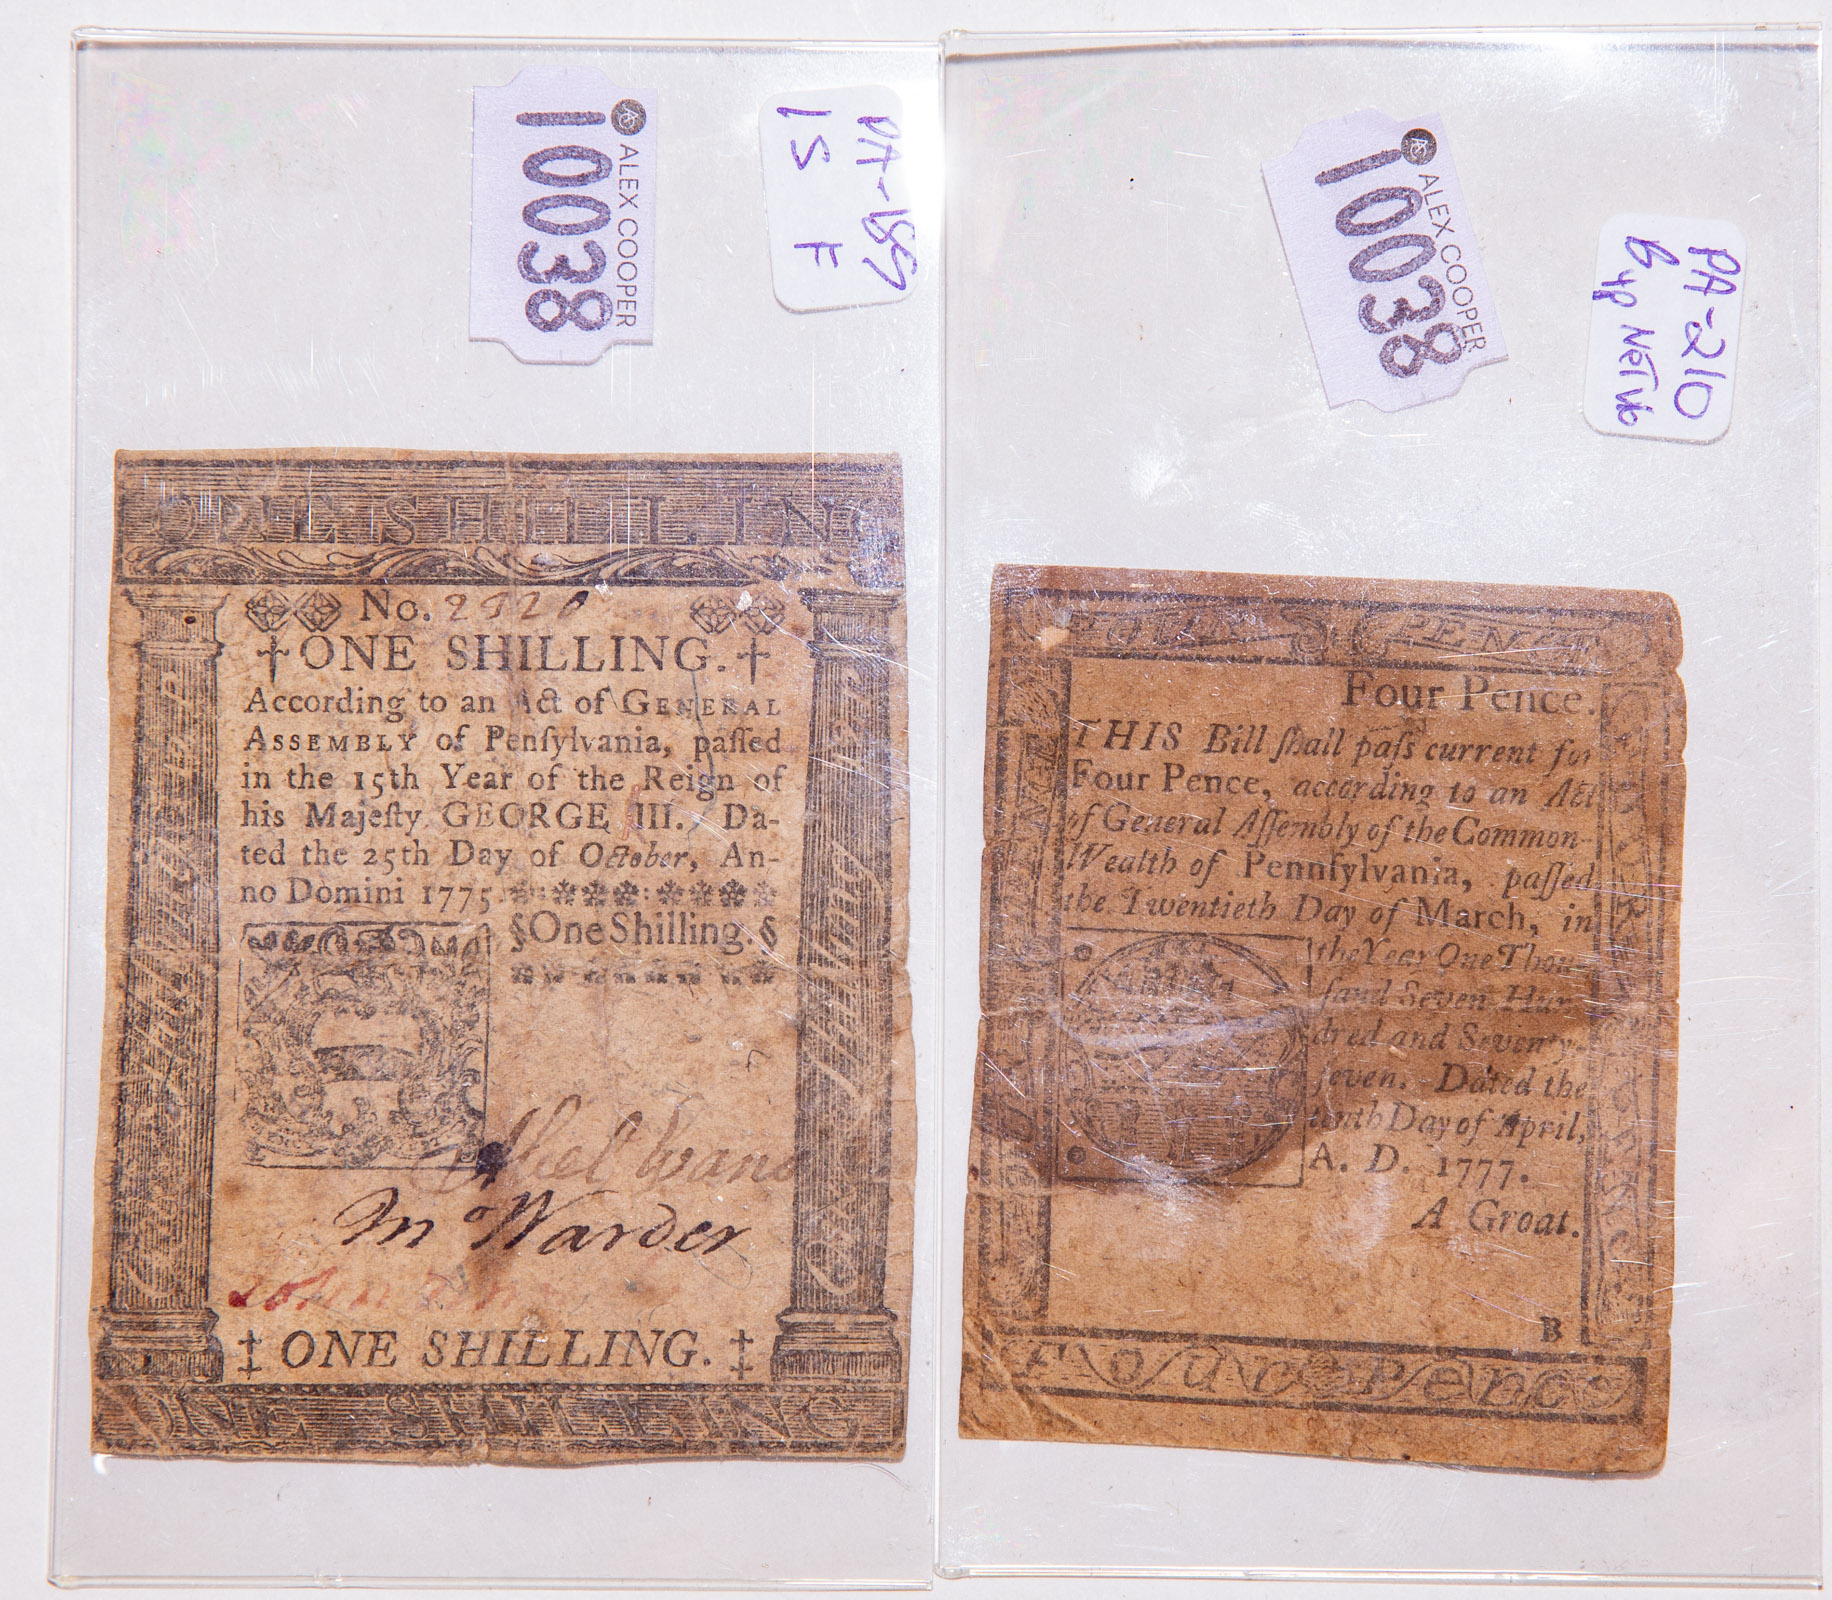 ALEX COOPER
10038
PA-189
1S F
ONE SHILLING
No. 2920
ONE SHILLING.
According to an Act of GENERAL
ASSEMBLY of Penſylvania, paſſed
in the 15th Year of the Reign of
his Majeſty GEORGE III. Da-
ted the 25th Day of October, An-
no Domini 1775.
§OneShilling.§
One Shilling
One Shilling
Jer Warder
ONE SHILLING.
ONE SHILLING
ALEX COOPER
10038
PA-210
FOUR PENCE
Four Pence.
THIS Bill ſhall paſs current for
Four Pence, according to an Act
of General Aſſembly of the Common-
Wealth of Pennſylvania, paſſed
the Twentieth Day of March, in
the Year One Thou-
ſand Seven Hun-
dred and Seventy-
ſeven. Dated the
tenth Day of April,
A. D. 1777.
A Groat.
B
Four Pence